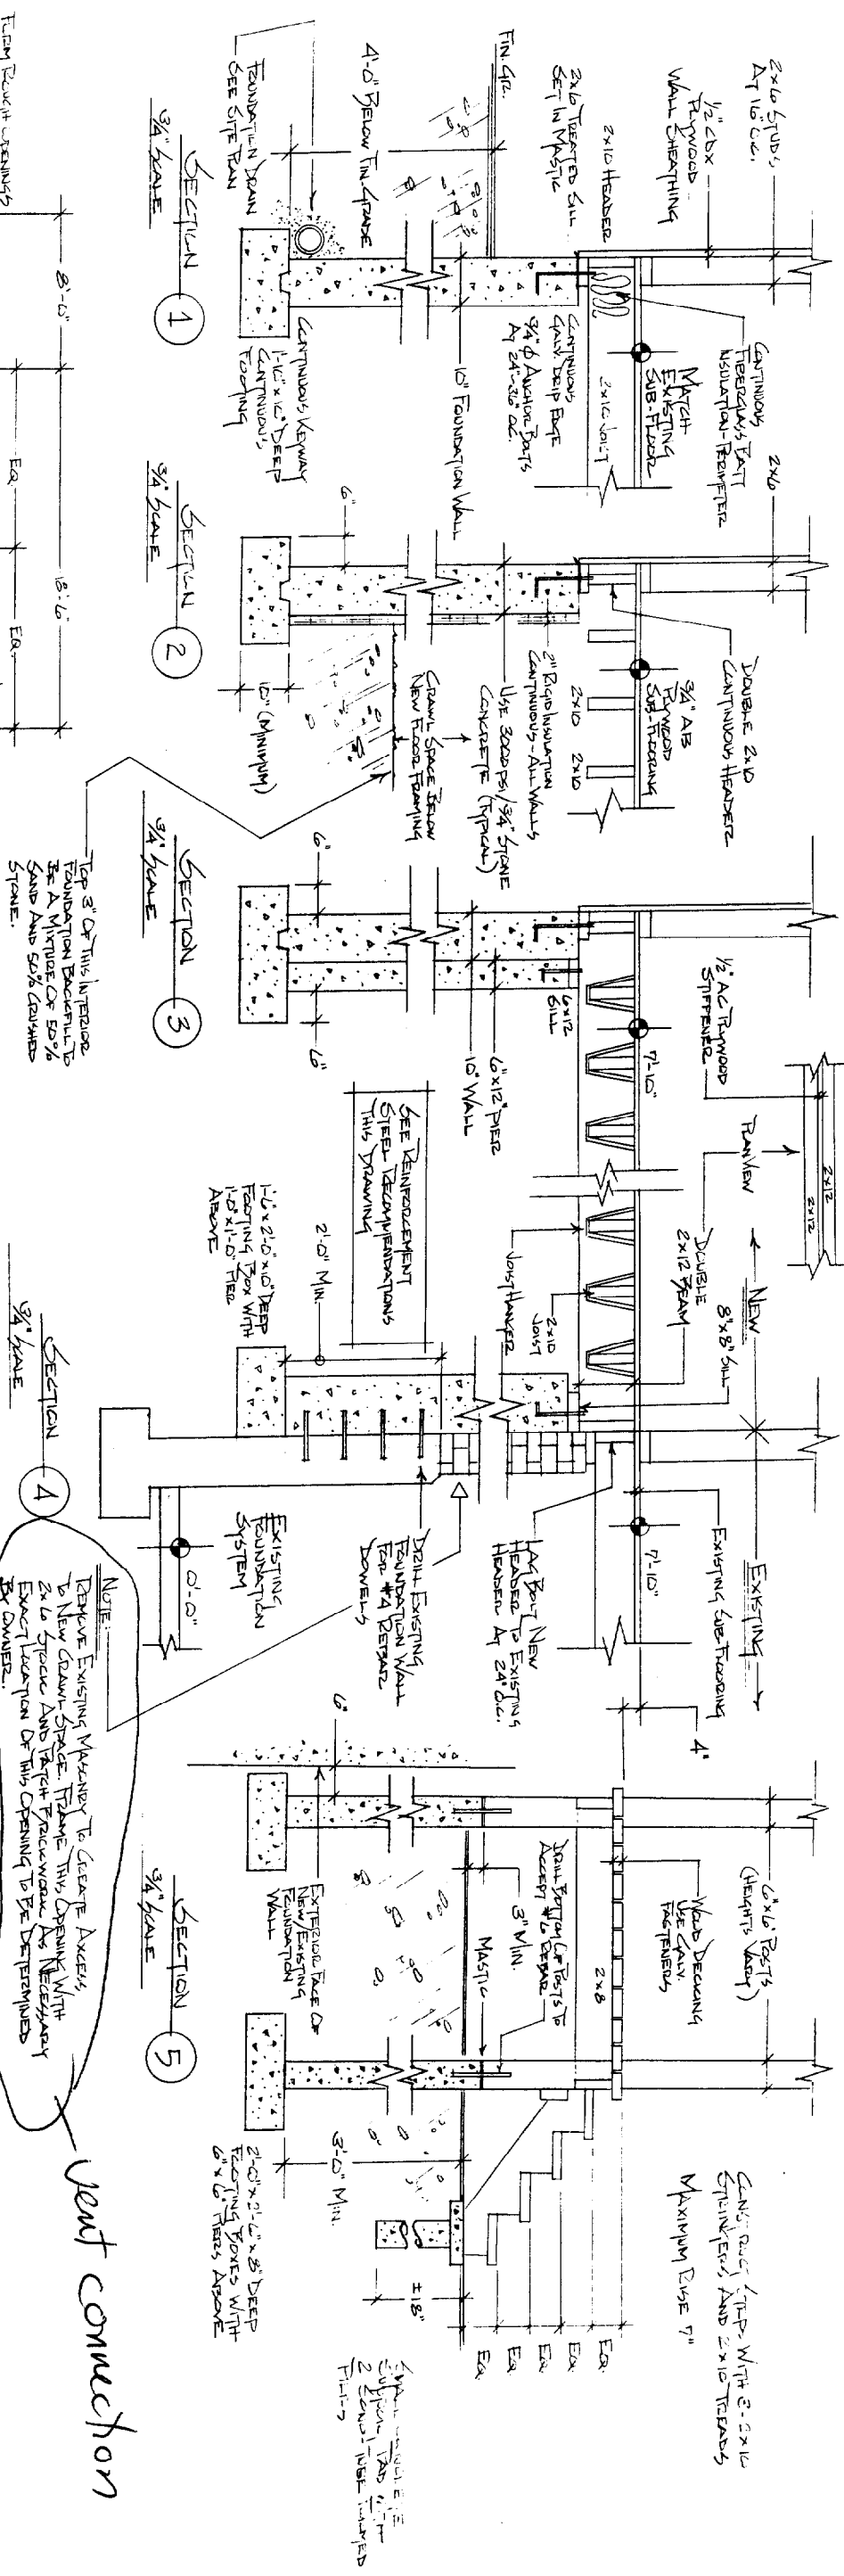 2x6 STUDS
AT 16" O.C.
1/2" CDX
PLYWOOD
WALL SHEATHING
2x10 HEADER
2x6 TREATED SILL
SET IN MASTIC
FIN. GR.
4'-0" BELOW FIN. GRADE
FOUNDATION DRAIN
SEE SITE PLAN
SECTION
3/4" SCALE
1
CONTINUOUS
FIBERGLASS BATT
INSULATION-PERIMETER
MATCH
EXISTING
SUB-FLOOR
2x10 JOIST
CONTINUOUS
GALV. DRIP EDGE
3/4" ϕ ANCHOR BOLTS
AT 24"-36" O.C.
10" FOUNDATION WALL
CONTINUOUS KEYWAY
CONTINUOUS
FOOTING
2x6
6"
SECTION
3/4" SCALE
2
DOUBLE 2x10
CONTINUOUS HEADER
3/4" AB
PLYWOOD
SUB-FLOORING
2x10
2x10
2" RIGID INSULATION
CONTINUOUS-ALL WALLS
USE 3000 PSI/3/4" STONE
CONCRETE (TYPICAL)
CRAWL SPACE BELOW
NEW FLOOR FRAMING
10" (MINIMUM)
TOP 3" OF THIS INTERIOR
FOUNDATION BACKFILL TO
BE A MIXTURE OF 50%
SAND AND 50% CRUSHED
STONE.
6"
SECTION
3/4" SCALE
3
1/2" AC PLYWOOD
STIFFENER
7'-10"
6x12
SILL
6"x12" PIER
10" WALL
6"
2x12
2x12
PLAN VIEW
DOUBLE
2x12 BEAM
NEW
EXISTING
8"x8" SILL
2x10
JOIST
JOIST HANGER
SEE REINFORCEMENT
STEEL RECOMMENDATIONS
THIS DRAWING
2'-0" MIN.
1'-6"x2'-0"x10" DEEP
FOOTING BOX WITH
1'-0"x1'-0" PIER
ABOVE
SECTION
3/4" SCALE
4
EXISTING SUB FLOORING
7'-10"
LAG BOLT NEW
HEADER TO EXISTING
HEADER AT 24" O.C.
DRILL EXISTING
FOUNDATION WALL
FOR #4 REBAR
DOWELS
EXISTING
FOUNDATION
SYSTEM
0'-0"
NOTE:
REMOVE EXISTING MASONRY TO CREATE ACCESS
TO NEW CRAWL SPACE. FRAME THIS OPENING WITH
2x6 STOCK AND PATCH BRICKWORK AS NECESSARY
EXACT LOCATION OF THIS OPENING TO BE DETERMINED
BY OWNER.
vent connection
4"
6"
6"x6" POSTS
(HEIGHTS VARY)
WOOD DECKING
USE GALV.
FASTENERS
2x8
DRILL BOTTOM OF POSTS TO
ACCEPT #6 REBAR
3" MIN.
MASTIC
EXTERIOR FACE OF
NEW/EXISTING
FOUNDATION
WALL
SECTION
3/4" SCALE
5
CONSTRUCT STEPS WITH
STRINGERS AND 2x10 TREADS
MAXIMUM RISE 7"
EQ.
EQ.
EQ.
EQ.
EQ.
±18"
3'-0" MIN.
2'-0"x2'-6"x8" DEEP
FOOTING BOXES WITH
6"x6" PIERS ABOVE
8'-0"
18'-6"
EQ.
EQ.
ROUGH OPENINGS